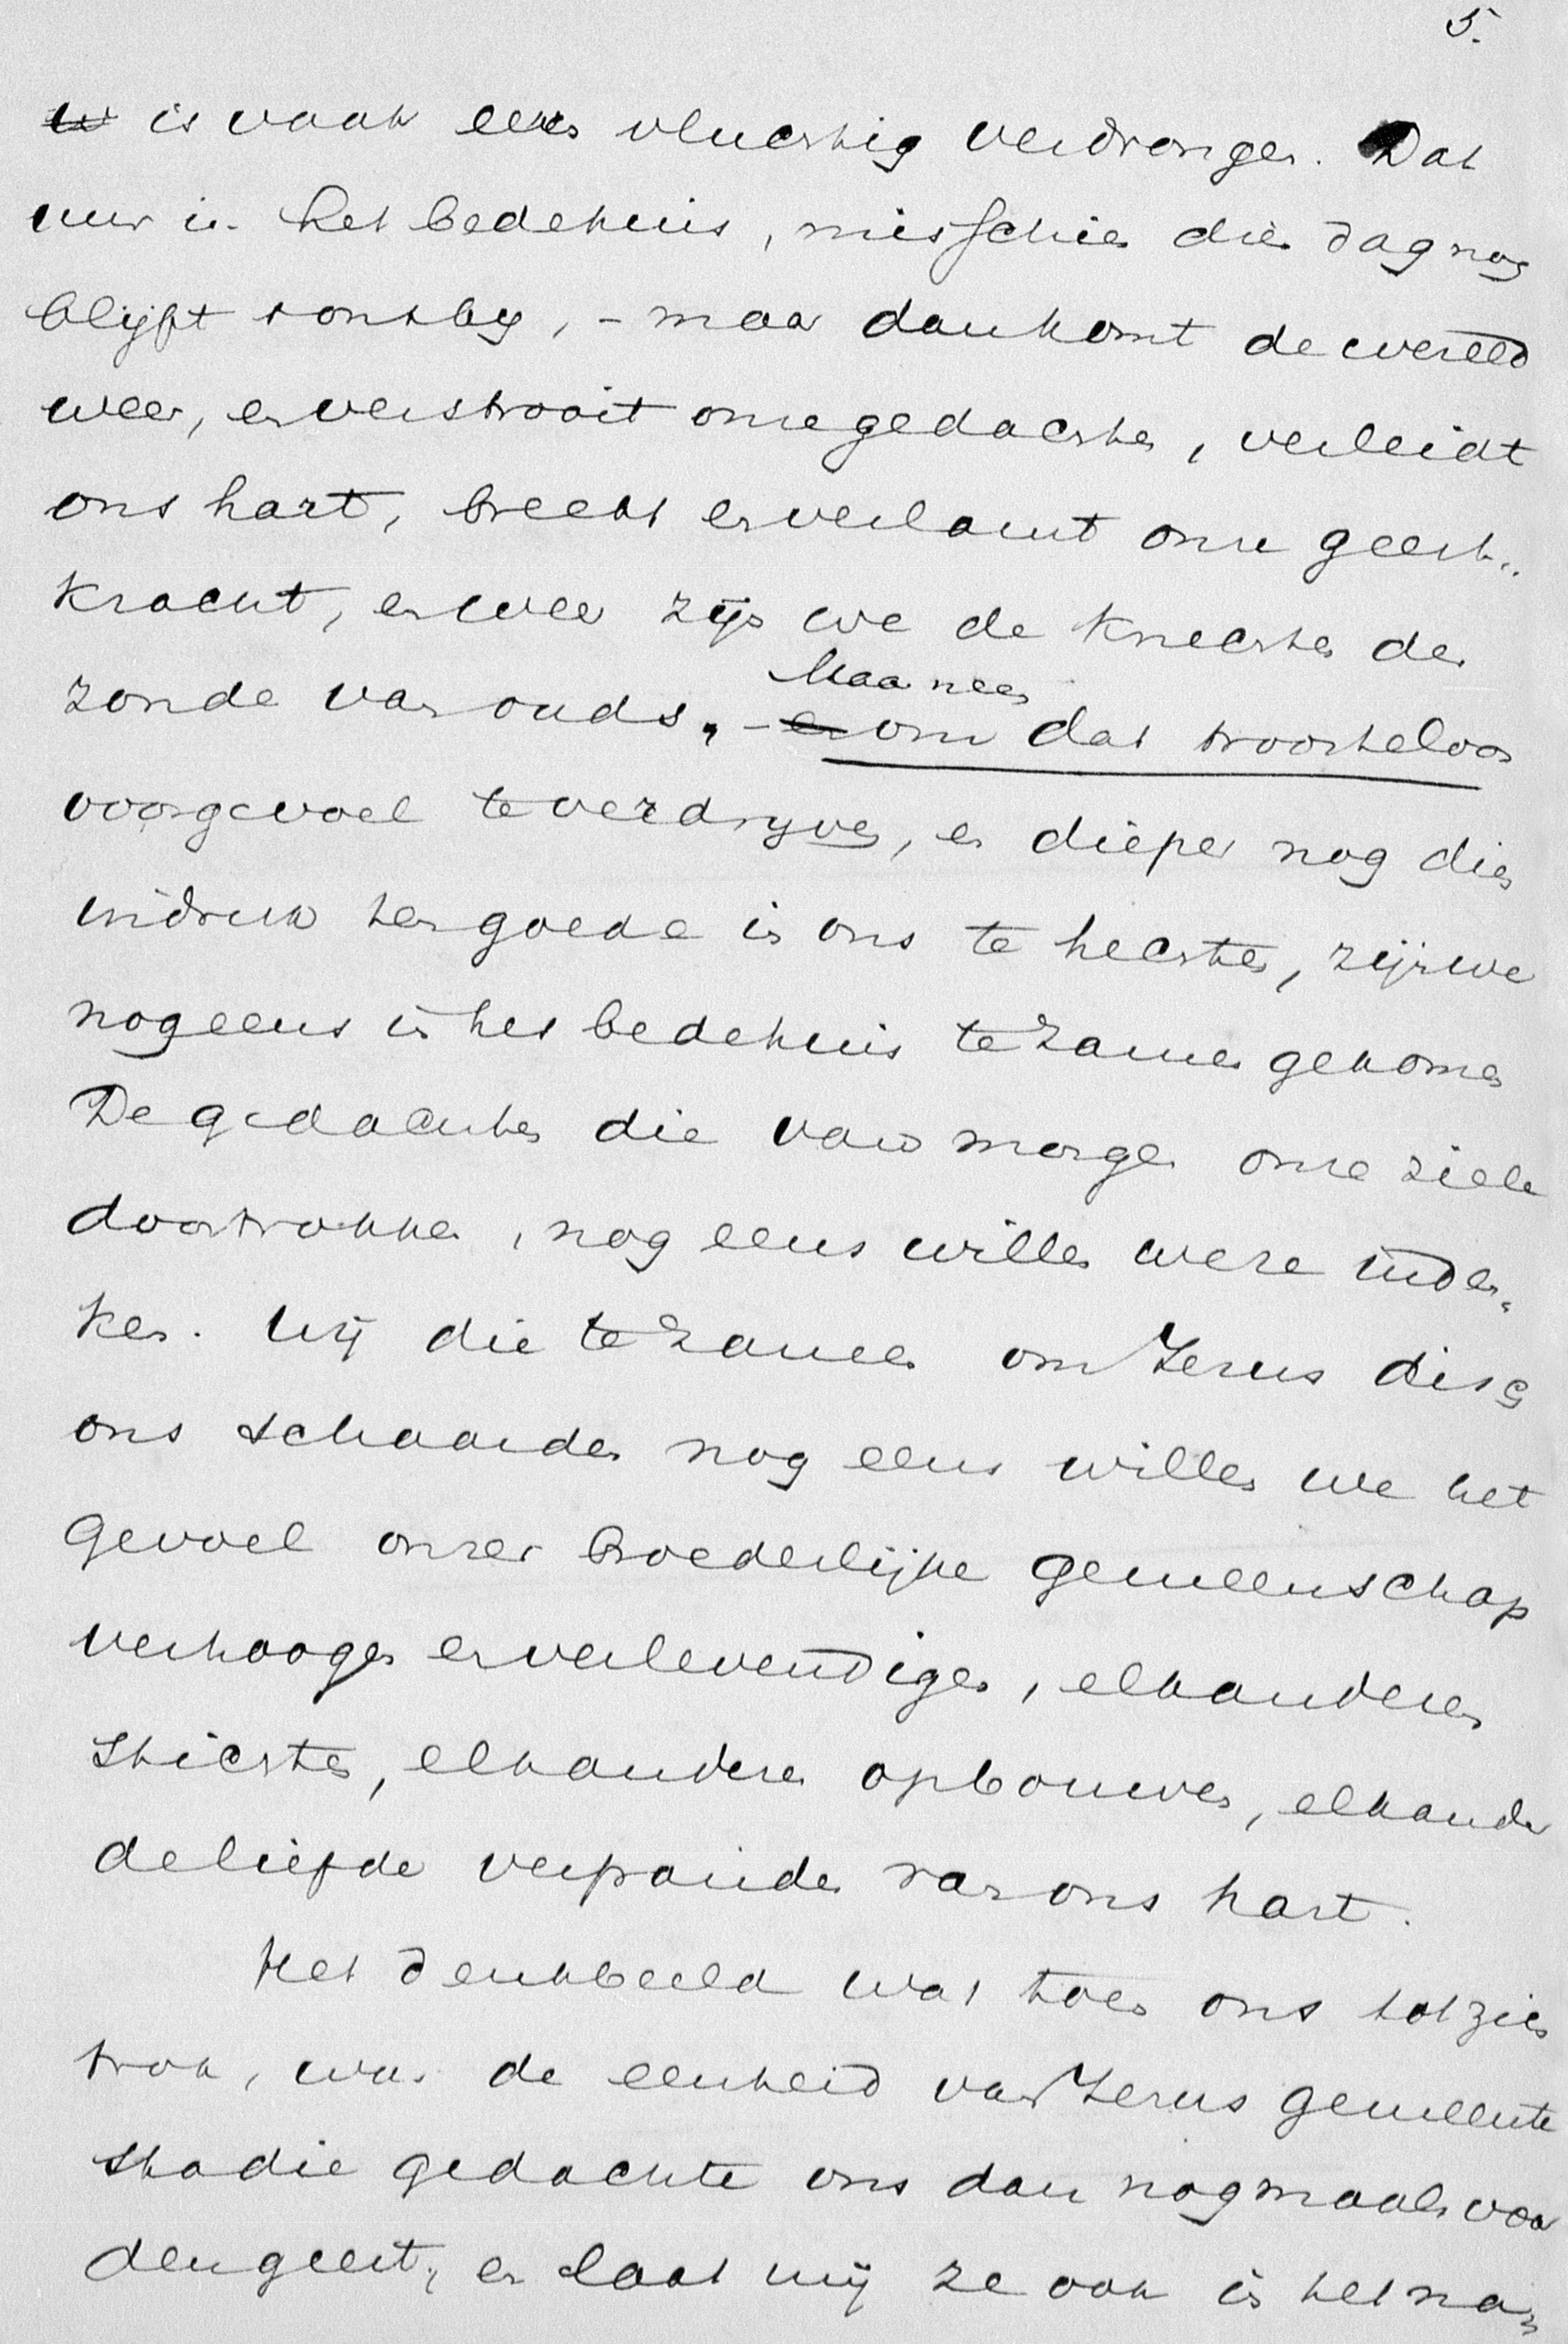 5.
is vaak eens vluchtig verdrongen. Dat
uur in het bedehuis, misschien dien dag nog
blijft 't ons by, – maar dan komt de wereld
weer, en verstrooit onze gedachten, verleidt
ons hart, breekt en verlamt onze geest..
kracht, en weer zijn we de knechten der
zonde van ouds. – Maar neen
en om dat troosteloos
voorgevoel te verdryven, en dieper nog dien
indruk ten goede in ons te hechten, zijn we
nog eens in het bedehuis te zamen gekomen
De gedachten die van morgen onze ziele
doortrokken, nog eens willen we ze inden„
ken. Wij die te zamen om Jezus disch
ons schaarden nog eens willen we het
gevoel onzer broederlijke gemeenschap
verhoogen en verlevendigen, elkanderen
stichten, elkanderen opbouwen, elkander
de liefde verpanden van ons hart.
Het denkbeeld wat toen ons tot zich
trok, was de eenheid van Jezus gemeente
Sta die gedachte ons dan nogmaals voor
den geest, en laat mij ze ook in het na„